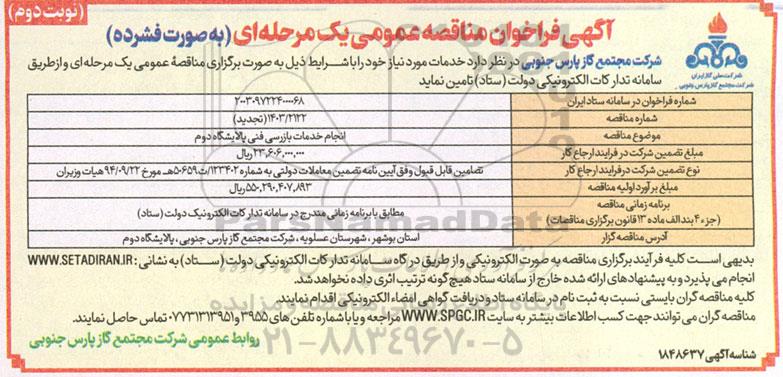 (نوبت دوم)
آگهی فراخوان مناقصه عمومی یک مرحله‌ای (به صورت فشرده)
شرکت ملی گاز ایران
شرکت مجتمع گاز پارس جنوبی
شرکت مجتمع گاز پارس جنوبی در نظر دارد خدمات مورد نیاز خود را با شرایط ذیل به صورت برگزاری مناقصهٔ عمومی یک مرحله‌ای و از طریق
سامانه تدارکات الکترونیکی دولت (ستاد) تامین نماید
شماره فراخوان در سامانه ستاد ایران ۲۰۰۳۰۹۷۲۲۴۰۰۰۰۶۸
شماره مناقصه ۱۴۰۳/۲۱۲۲ (تجدید)
موضوع مناقصه انجام خدمات بازرسی فنی پالایشگاه دوم
مبلغ تضمین شرکت در فرایند ارجاع کار ۲۳,۶۰۶,۰۰۰,۰۰۰ ریال
نوع تضمین شرکت در فرایند ارجاع کار تضامین قابل قبول وفق آیین نامه تضمین معاملات دولتی به شماره ۱۲۳۴۰۲/ت۵۰۶۵۹هـ مورخ ۹۴/۰۹/۲۲ هیات وزیران
مبلغ برآورد اولیه مناقصه ۵۵۰,۲۹۰,۴۰۷,۸۹۳ ریال
برنامه زمانی مناقصه
(جزء ۴ بند الف ماده ۱۳ قانون برگزاری مناقصات) مطابق با برنامه زمانی مندرج در سامانه تدارکات الکترونیک دولت (ستاد)
آدرس مناقصه گزار استان بوشهر، شهرستان عسلویه، شرکت مجتمع گاز پارس جنوبی، پالایشگاه دوم
بدیهی است کلیه فرآیند برگزاری مناقصه به صورت الکترونیکی و از طریق درگاه سامانه تدارکات الکترونیکی دولت (ستاد) به نشانی: WWW.SETADIRAN.IR
انجام می پذیرد و به پیشنهادهای ارائه شده خارج از سامانه ستاد هیچ گونه ترتیب اثری داده نخواهد شد.
کلیه مناقصه گران بایستی نسبت به ثبت نام در سامانه ستاد و دریافت گواهی امضاء الکترونیکی اقدام نمایند.
مناقصه گران می توانند جهت کسب اطلاعات بیشتر به سایت WWW.SPGC.IR مراجعه و یا با شماره تلفن های ۳۹۵۵ و ۰۷۷۳۱۳۱۳۹۵۱ تماس حاصل نمایند.
روابط عمومی شرکت مجتمع گاز پارس جنوبی
شناسه آگهی ۱۸۴۸۶۳۷
ParsNamadData
۰۲۱-۸۸۳۴۹۶۷۰-۵